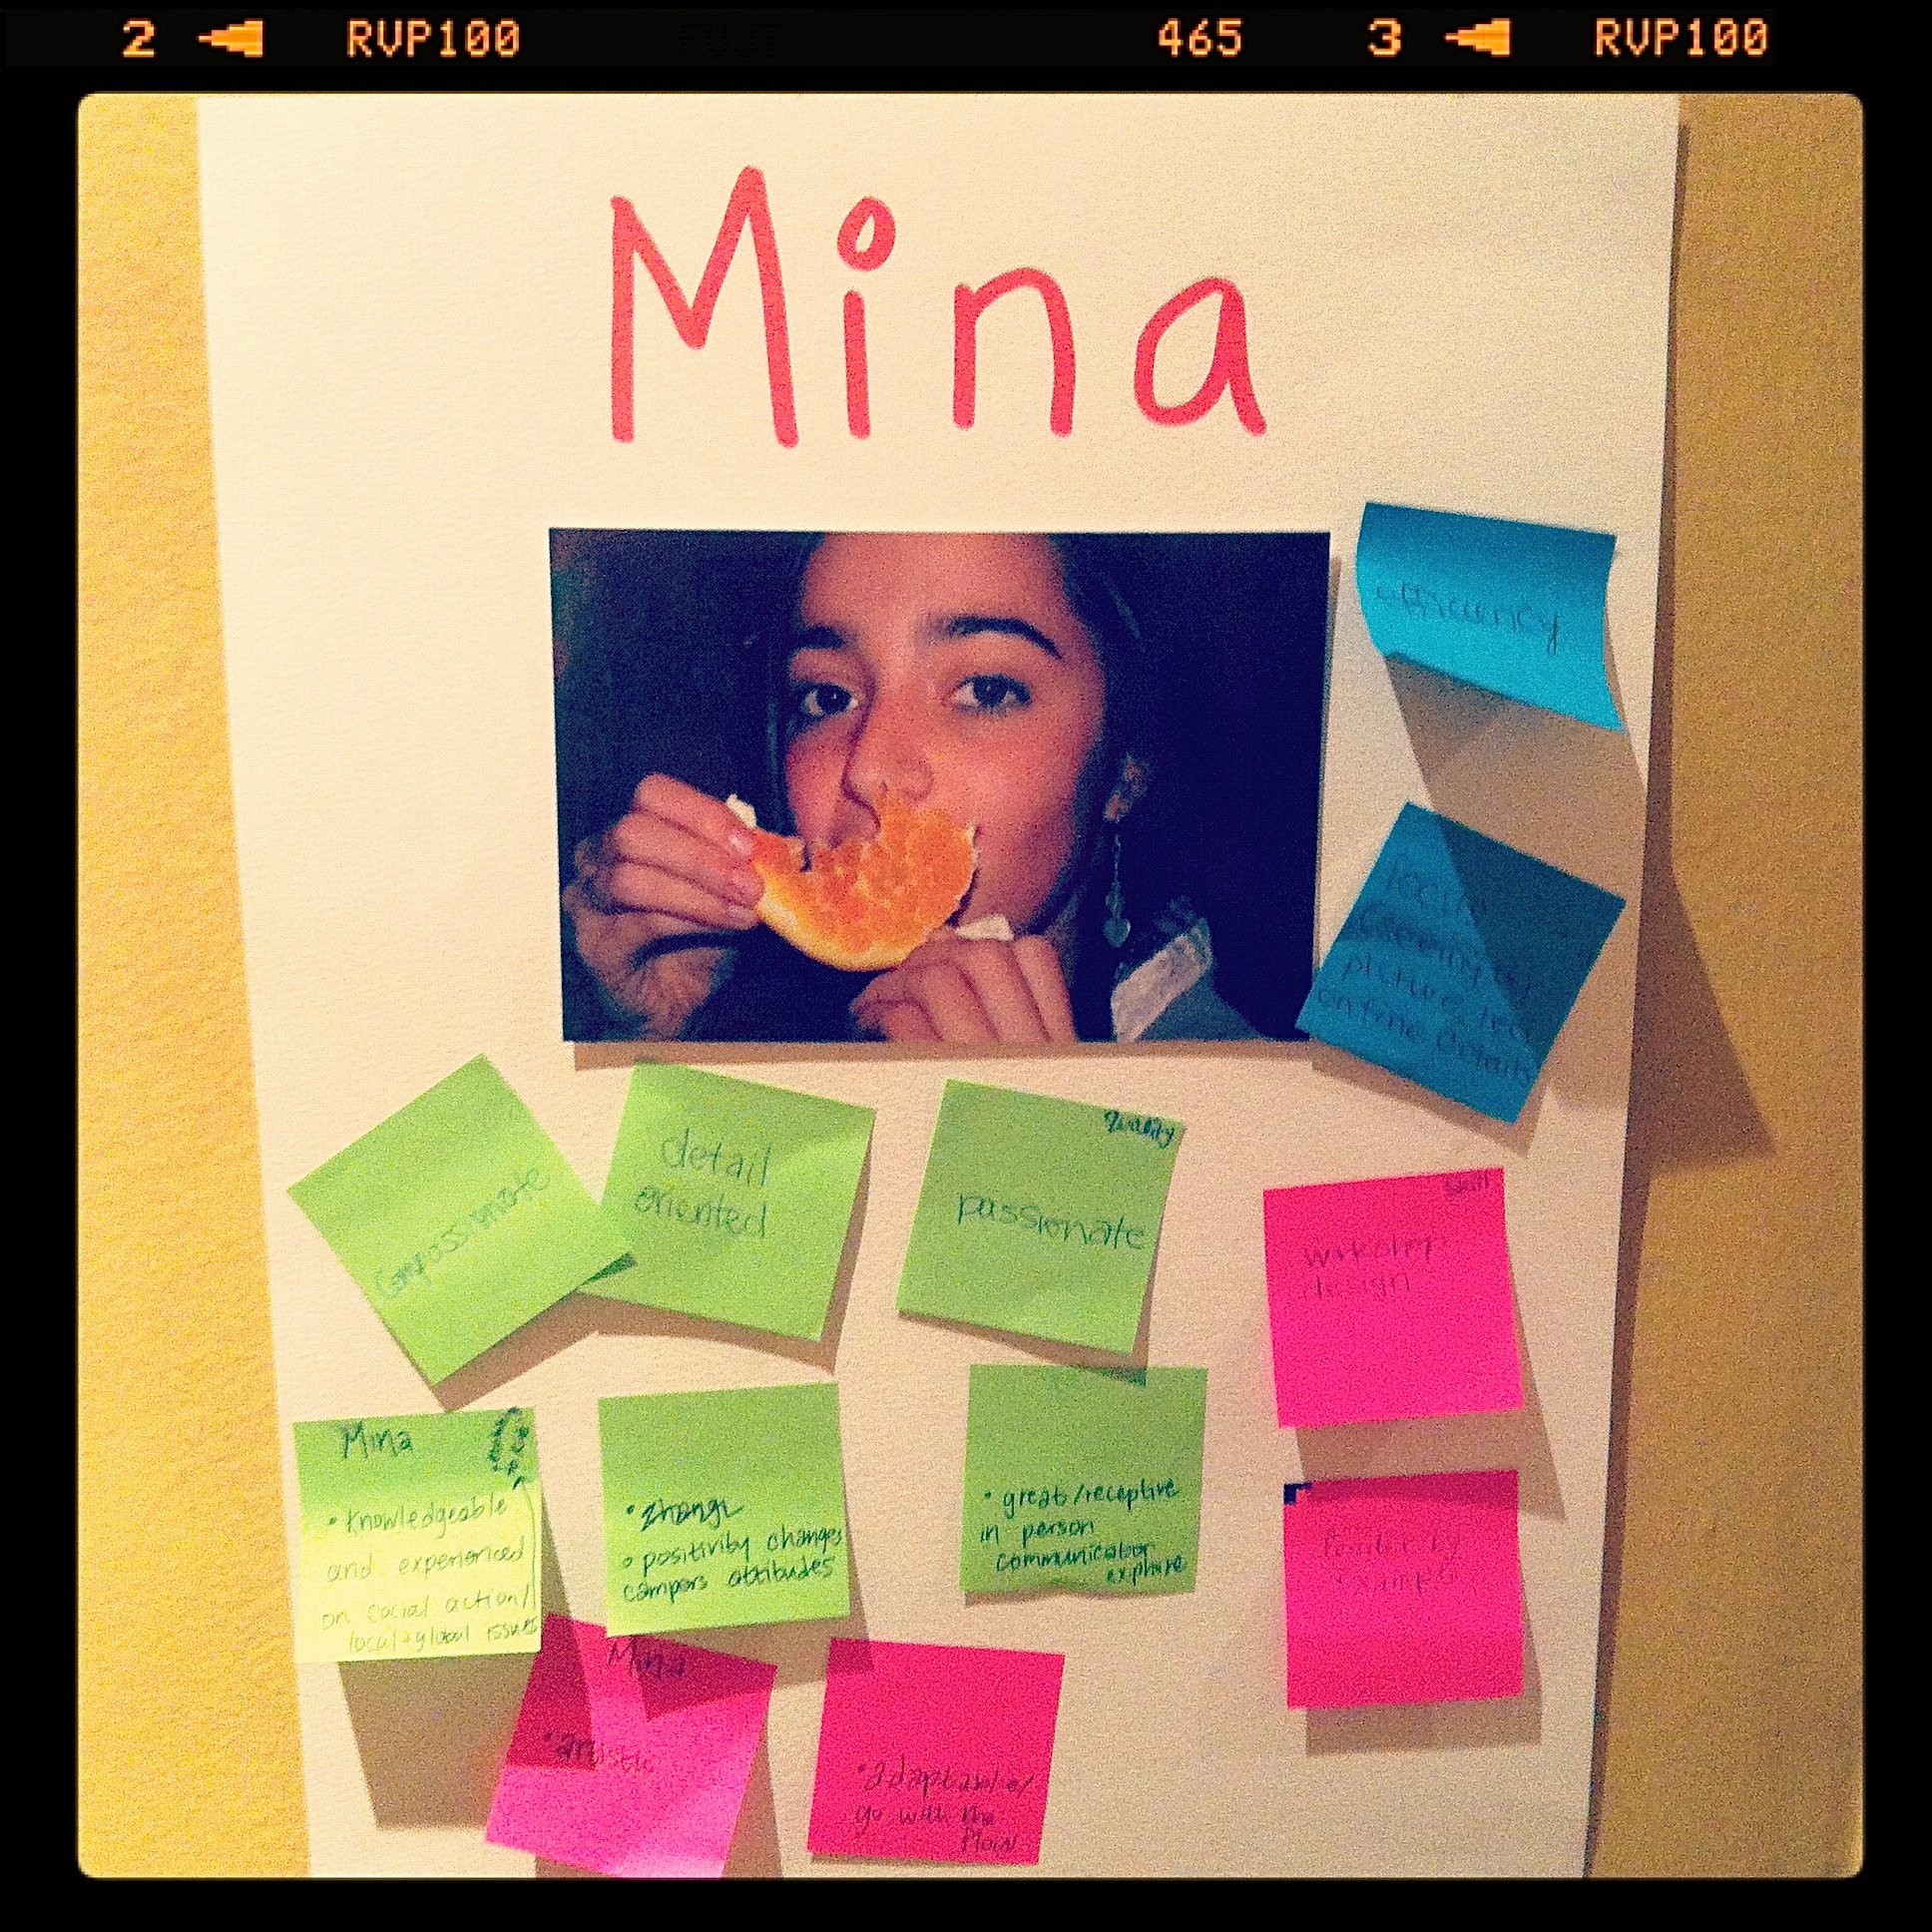 2 RVP100 FUJI 465 3 RVP100
Mina
efficiency
local
picture,
on fine details
compassionate
detail
oriented
quality
passionate
skill
workshop
design
Mina
• knowledgeable
and experienced
on social action/
local + global issues
o positivity changes
campers attitudes
• great/receptive
in person
communicator
Mina
• artistic
• adaptable/
go with the
flow